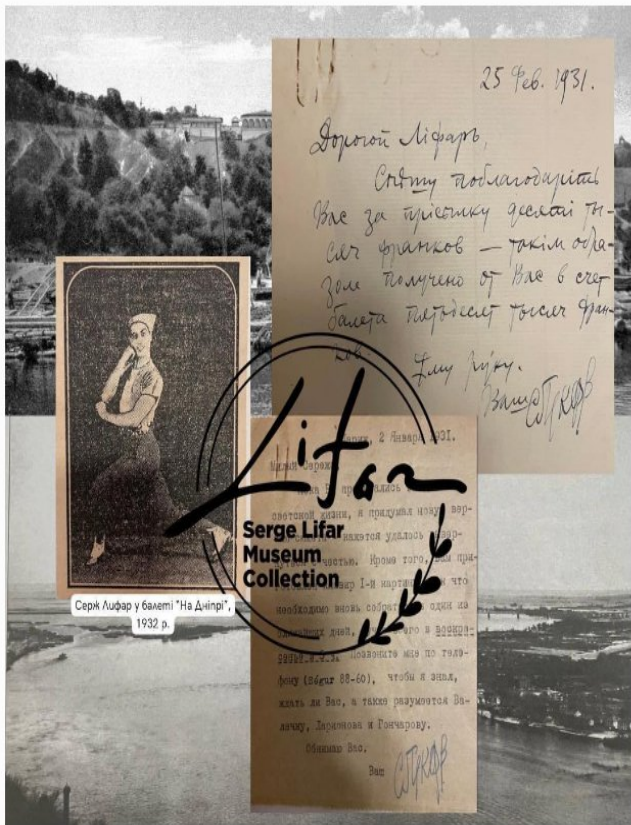 25 Фев. 1931.
Дорогой Ліфаръ,
Спѣшу поблагодаріть
Вас за прісылку десяті ты-
сяч франков — такім обра-
зом получено от Вас в счет
балета пятьдесят тысяч фран-
ков. Жму руку.
Ваш СПркфв
Lifar
Serge Lifar
Museum
Collection
Серж Лифар у балеті "На Дніпрі",
1932 р.
2 Января 1931.
Милый Сережа
светской жизни, я придумал нову вер-
кажется удалось
честью. Кроме того, при-
I-й что
необходимо вновь один из
дней, в воскре-
Позвоните мне по теле-
фону (Ségur 88-60), чтобы я знал,
ждать ли Вас, а также разумеется Ва-
лечку, Ларионова и Гончарову.
Обнимаю Вас.
Ваш СПркфв